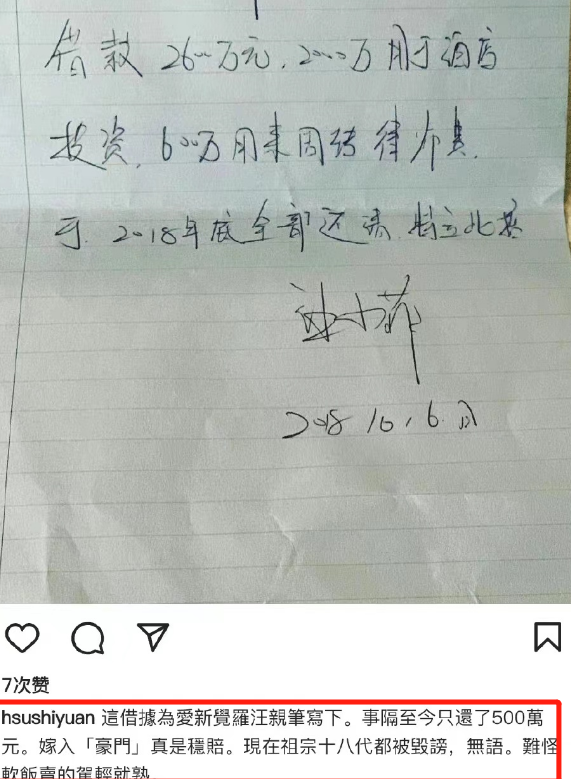 借款2600万元,2000万用于酒店
投资,600万用来周转律师费,
于2018年底全部还清,特立此据
汪小菲
2018.10.6.
7次赞
hsushiyuan 這借據為愛新覺羅汪親筆寫下。事隔至今只還了500萬
元。嫁入「豪門」真是穩賠。現在祖宗十八代都被毀謗,無語。難怪
軟飯賣的駕輕就熟